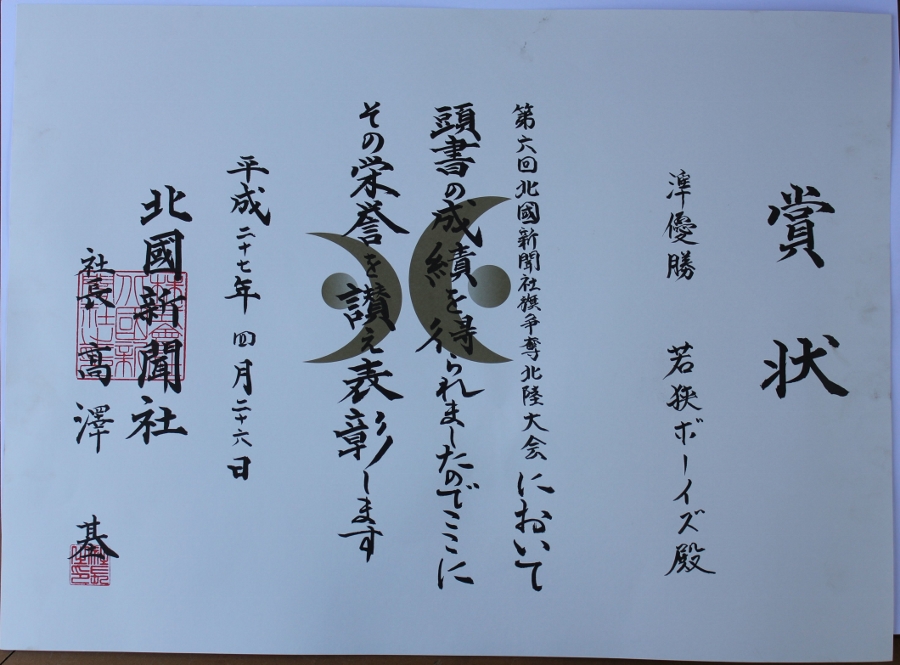 賞状
準優勝 若狭ボーイズ殿
第六回北國新聞社旗争奪北陸大会において
頭書の成績を得られましたのでここに
その栄誉を讃え表彰します
平成二十七年四月二十六日
北國新聞社
社長 高澤 基